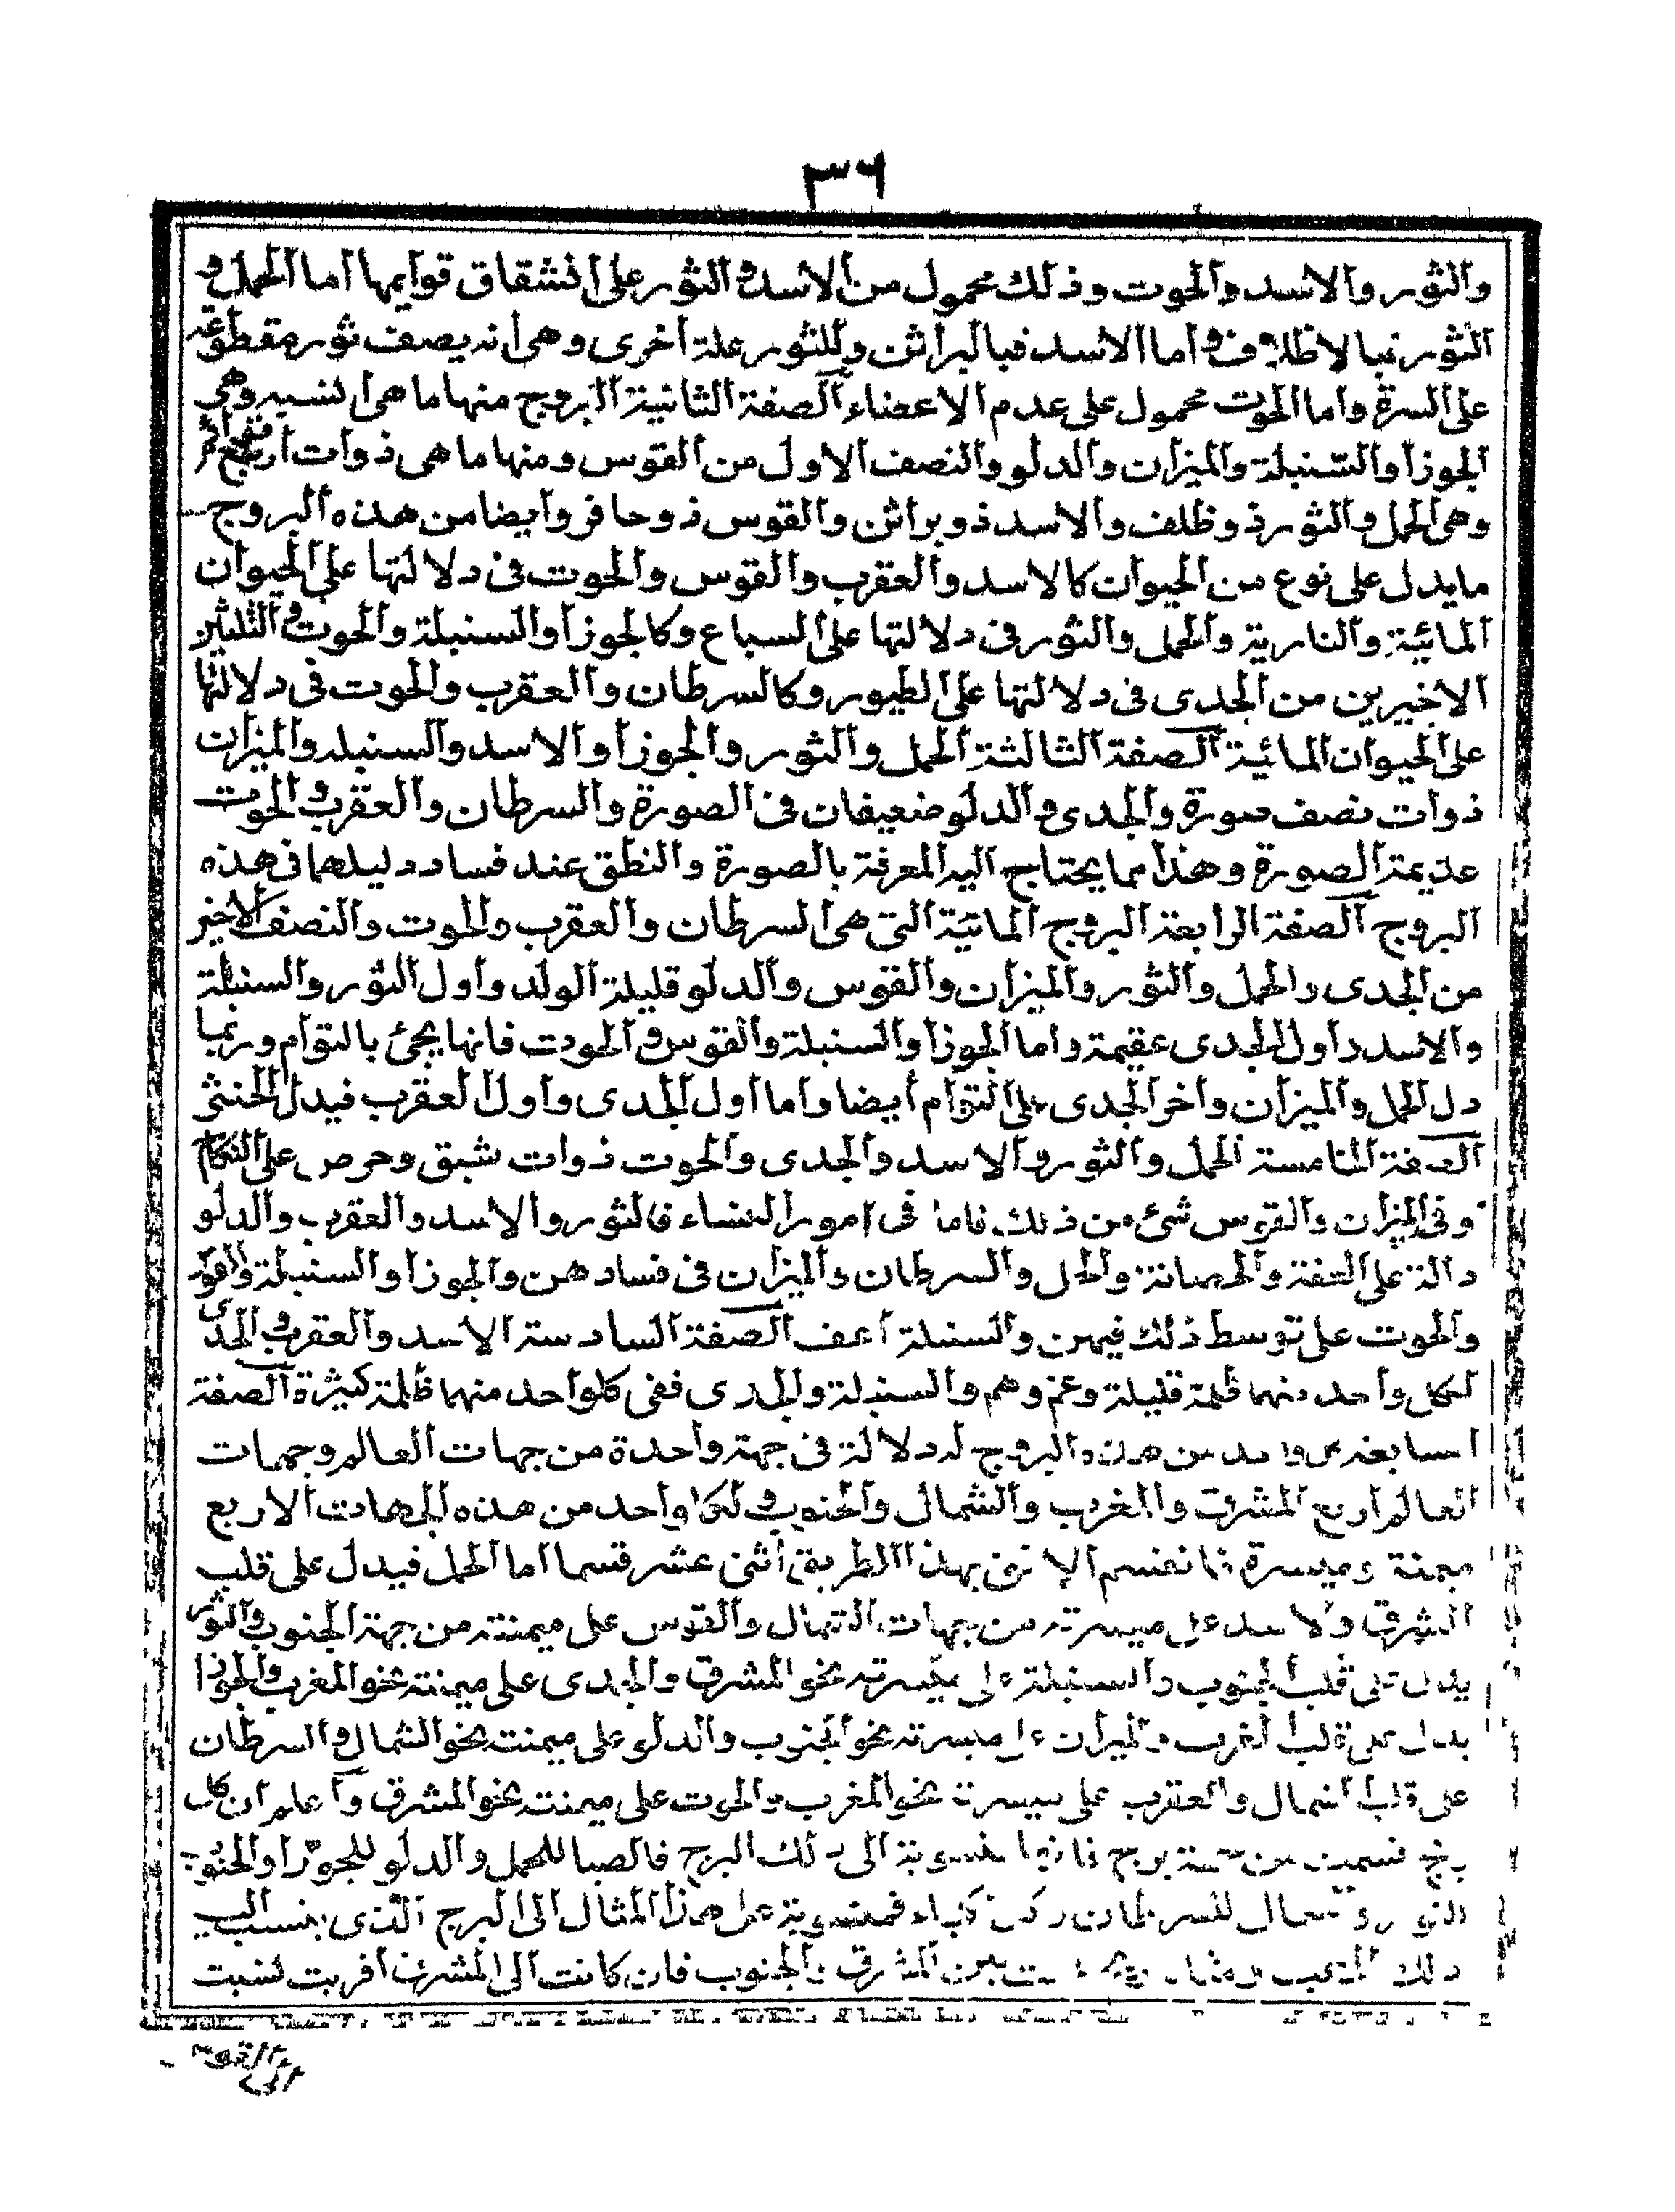 ٣٦
والثور والاسد والحوت وذلك محمول من الاسد والثور على انشقاق قوايمها اما الحمل و
الثور فبالاظلاف واما الاسد فبالبراثن وللثور علة اخرى وهي انه يصف ثور مقطوعة
على السرة واما الحوت محمول على عدم الاعضاء الصفة الثانية البروج منها ما هى انسيه وهى
الجوزا والسنبلة والميزان والدلو والنصف الاول من القوس ومنها ما هى ذوات اربع
وهى الحمل والثور ذو ظلف والاسد ذو براثن والقوس ذو حافر وايضا من هذه البروج
مايدل على نوع من الحيوان كالاسد والعقرب والقوس والحوت فى دلالتها على الحيوان
المائية والنارية والحمل والثور فى دلالتها على السباع وكالجوزا والسنبلة والحوت والثلثين
الاخيرين من الجدى فى دلالتها على الطيور وكالسرطان والعقرب والحوت فى دلالتها
على الحيوان المائية الصفة الثالثة الحمل والثور والجوزا والاسد والسنبله والميزان
ذوات نصف صورة والجدى والدلو ضعيفان فى الصورة والسرطان والعقرب والحوت
عديمة الصورة وهذا مما يحتاج اليه المعرفة بالصورة والنطق عند فساد دليلهما فى هذه
البروج الصفة الرابعة البروج المائية التى هى السرطان والعقرب والحوت والنصف الاخير
من الجدى والحمل والثور والميزان والقوس والدلو قليلة الولد واول الثور والسنبلة
والاسد واول الجدى عقيمة واما الجوزا والسنبلة والقوس والحوت فانها يجئ بالتوام وربما
دل الحمل والميزان واخر الجدى على التوام ايضا واما اول الجدى واول العقرب فيدل الخنثى
الصفة الخامسة الحمل والثور والاسد والجدى والحوت ذوات شبق وحرص على النكاح
وفى الميزان والقوس شئ من ذلك فاما فى امور النساء فالثور والاسد والعقرب والدلو
دالة على العفة والحصانة والحمل والسرطان والميزان فى فسادهن والجوزا والسنبلة
والحوت على توسط ذلك فيهن والسنبلة اعف الصفة السادسة الاسد والعقرب والجدى
لكل واحد منهما ظلمة قليلة وغم وهم والسنبلة والجدى ففى كلواحد منهما ظلمة كثيرة الصفة
السابعة من هذه البروج له دلالة فى جهة واحدة من جهات العالم وجهات
العالم اربع المشرق والمغرب والشمال والجنوب ولكل واحد من هذه الجهات الاربع
ميمنة وميسرة بهذا الطريق اثنى عشر قسما اما الحمل فيدل على قلب
الشرق والاسد على ميسرته من جهات الشمال والقوس على ميمنته من جهة الجنوب والثور
يدل على قلب الجنوب والسنبلة على ميسرته نحو المشرق والجدى على ميمنته نحو المغرب والجوزا
يدل على قلب الغرب والميزان على ميسرته نحو الجنوب والدلو على ميمنته نحو الشمال والسرطان
على قلب الشمال والعقرب على ميسرته نحو المغرب والحوت على ميمنته نحو المشرق واعلم ان كل
منسوبة الى ذلك البرج فالصبا للحمل والدلو للجوزا والجنوب
للسرطان على هذا المثال الى البرج الذى ينسب اليه
ذلك بين المشرق والجنوب فان كانت الى المشرق اقربت نسبت
الى القوس